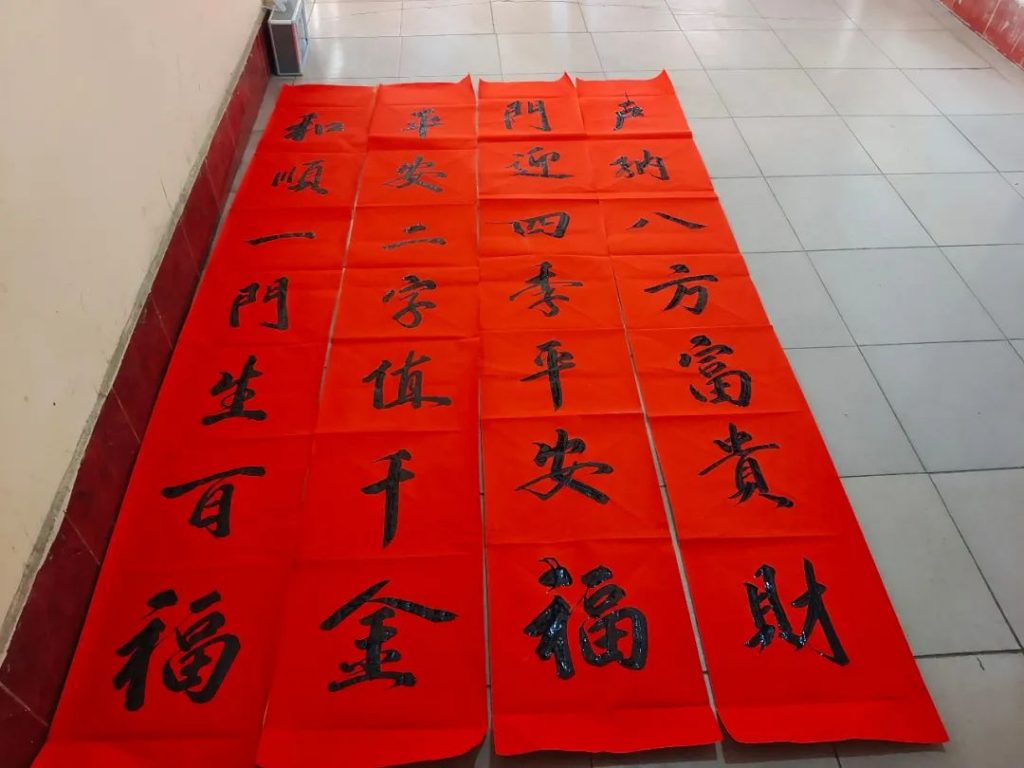 和順一門生百福
平安二字值千金
門迎四季平安福
户納八方富貴財